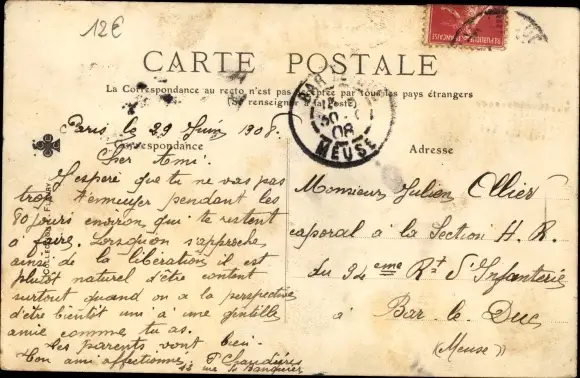 12€
RÉPUBLIQUE FRANÇAISE
CARTE POSTALE
La Correspondance au recto n'est pas acceptée par tous les pays étrangers
(Se renseigner à la Poste)
BAR LE DUC
30
08
MEUSE
Correspondance
Adresse
Paris le 29 Juin 1908.
Cher Ami.
J'espère que tu ne vas pas
trop t'ennuyer pendant les
80 jours environ qui te restent
à faire. Lorsqu'on s'approche
ainsi de la libération il est
plutôt naturel d'être content
surtout quand on a la perspective
d'être bientôt uni à une gentille
amie comme tu as.
Tes parents vont bien.
Ton ami affectionné P. Chaudières
13 rue Banquier
Monsieur Julien Ollier
caporal à la Section H. R.
du 94eme Rt d'Infanterie
à Bar-le-Duc
(Meuse)
COLLECTION